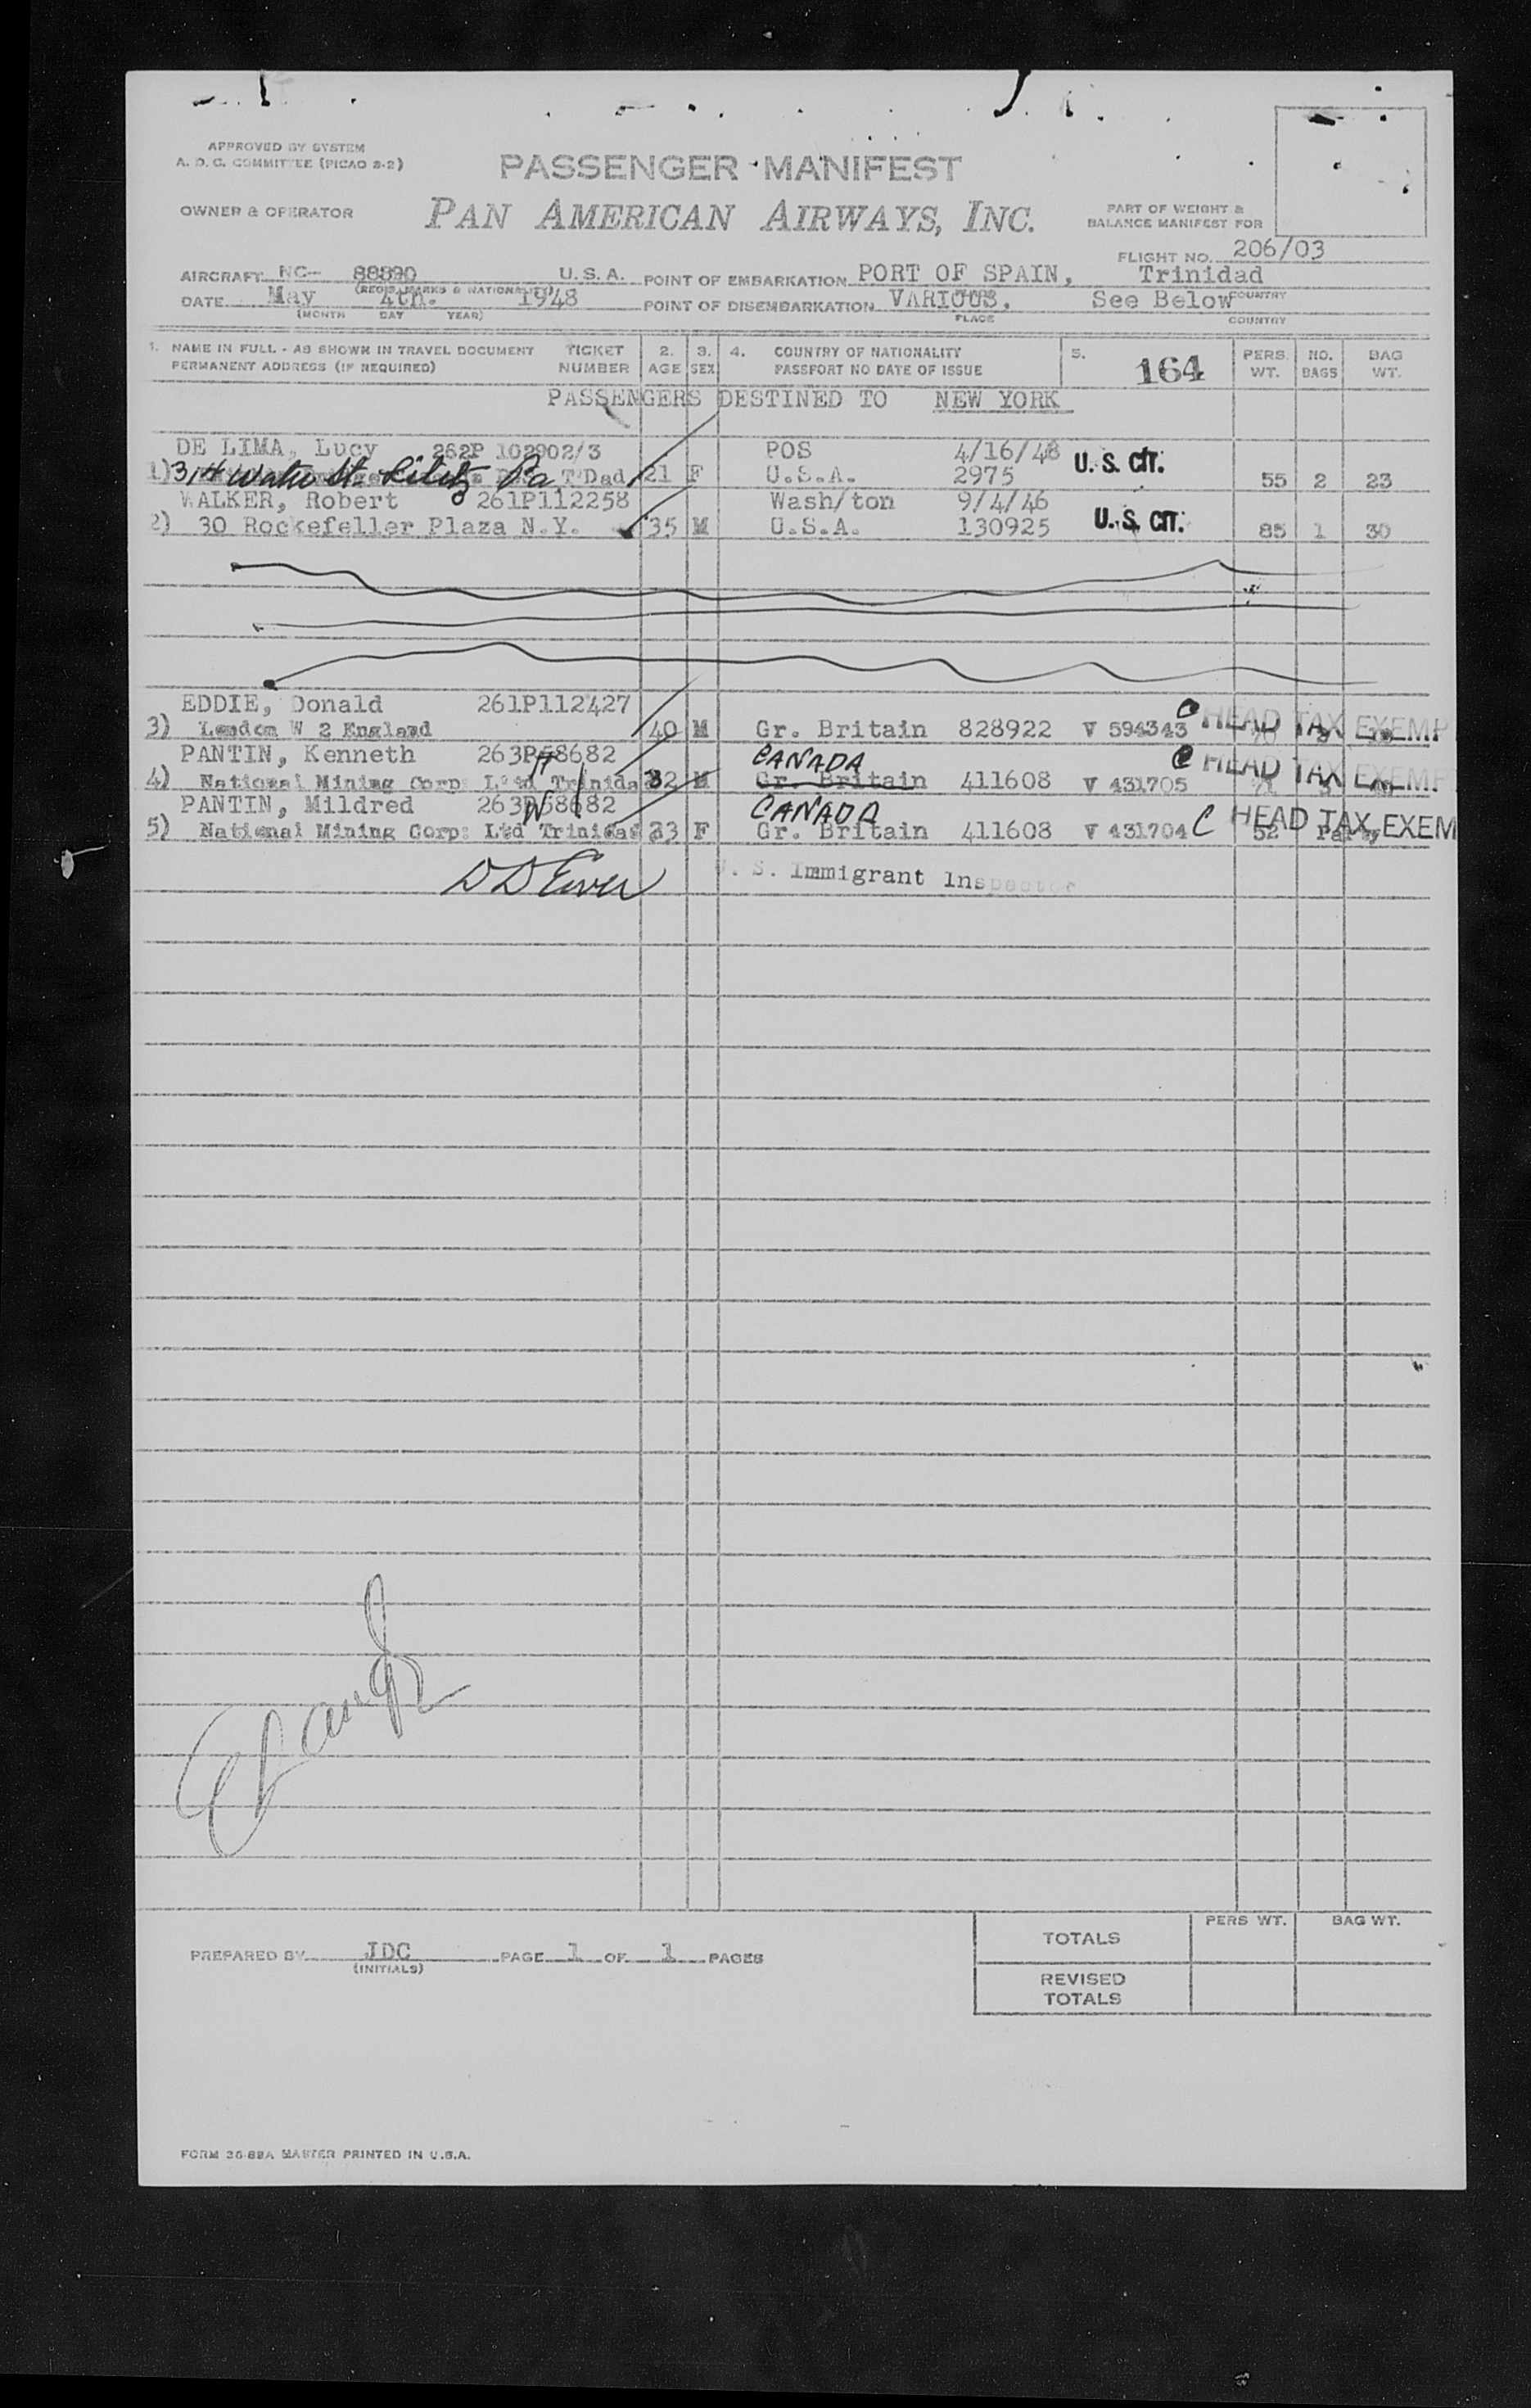 APPROVED BY SYSTEM
A. D. C. COMMITTEE (PICAO S-2)
PASSENGER MANIFEST
OWNER & OPERATOR
PAN AMERICAN AIRWAYS, INC.
PART OF WEIGHT &
BALANCE MANIFEST FOR
FLIGHT NO. 206/03
AIRCRAFT NC- 88890 U.S.A. POINT OF EMBARKATION PORT OF SPAIN, Trinidad
(REGIS. MARKS & NATIONALITY) PLACE COUNTRY
DATE May 4th. 1948 POINT OF DISEMBARKATION VARIOUS, See Below
(MONTH DAY YEAR) PLACE COUNTRY
1. NAME IN FULL - AS SHOWN IN TRAVEL DOCUMENT TICKET 2. 3. 4. COUNTRY OF NATIONALITY 5. 164 PERS. NO. BAG
PERMANENT ADDRESS (IF REQUIRED) NUMBER AGE SEX PASSPORT NO DATE OF ISSUE WT. BAGS WT.
PASSENGERS DESTINED TO NEW YORK
DE LIMA, Lucy 262P 102902/3 POS 4/16/48 U. S. CIT.
1) 314 Water St. Lititz Pa T'Dad 21 F U.S.A. 2975 55 2 23
WALKER, Robert 261P112258 Wash/ton 9/4/46
2) 30 Rockefeller Plaza N.Y. 35 M U.S.A. 130925 U. S. CIT. 85 1 30
EDDIE, Donald 261P112427
3) London W 2 England 40 M Gr. Britain 828922 V 594343 C HEAD TAX EXEMP
PANTIN, Kenneth 263P58682 CANADA
4) National Mining Corp: Ltd Trinidad 32 M Gr. Britain 411608 V 431705 C HEAD TAX EXEMP
PANTIN, Mildred 263P58682 CANADA
5) National Mining Corp: Ltd Trinidad 33 F Gr. Britain 411608 V 431704 C HEAD TAX EXEM 52 Party
U. S. Immigrant Inspector
PREPARED BY JDC PAGE 1 OF 1 PAGES
(INITIALS)
PERS WT. BAG WT.
TOTALS
REVISED
TOTALS
FORM 26-88A MASTER PRINTED IN U.S.A.